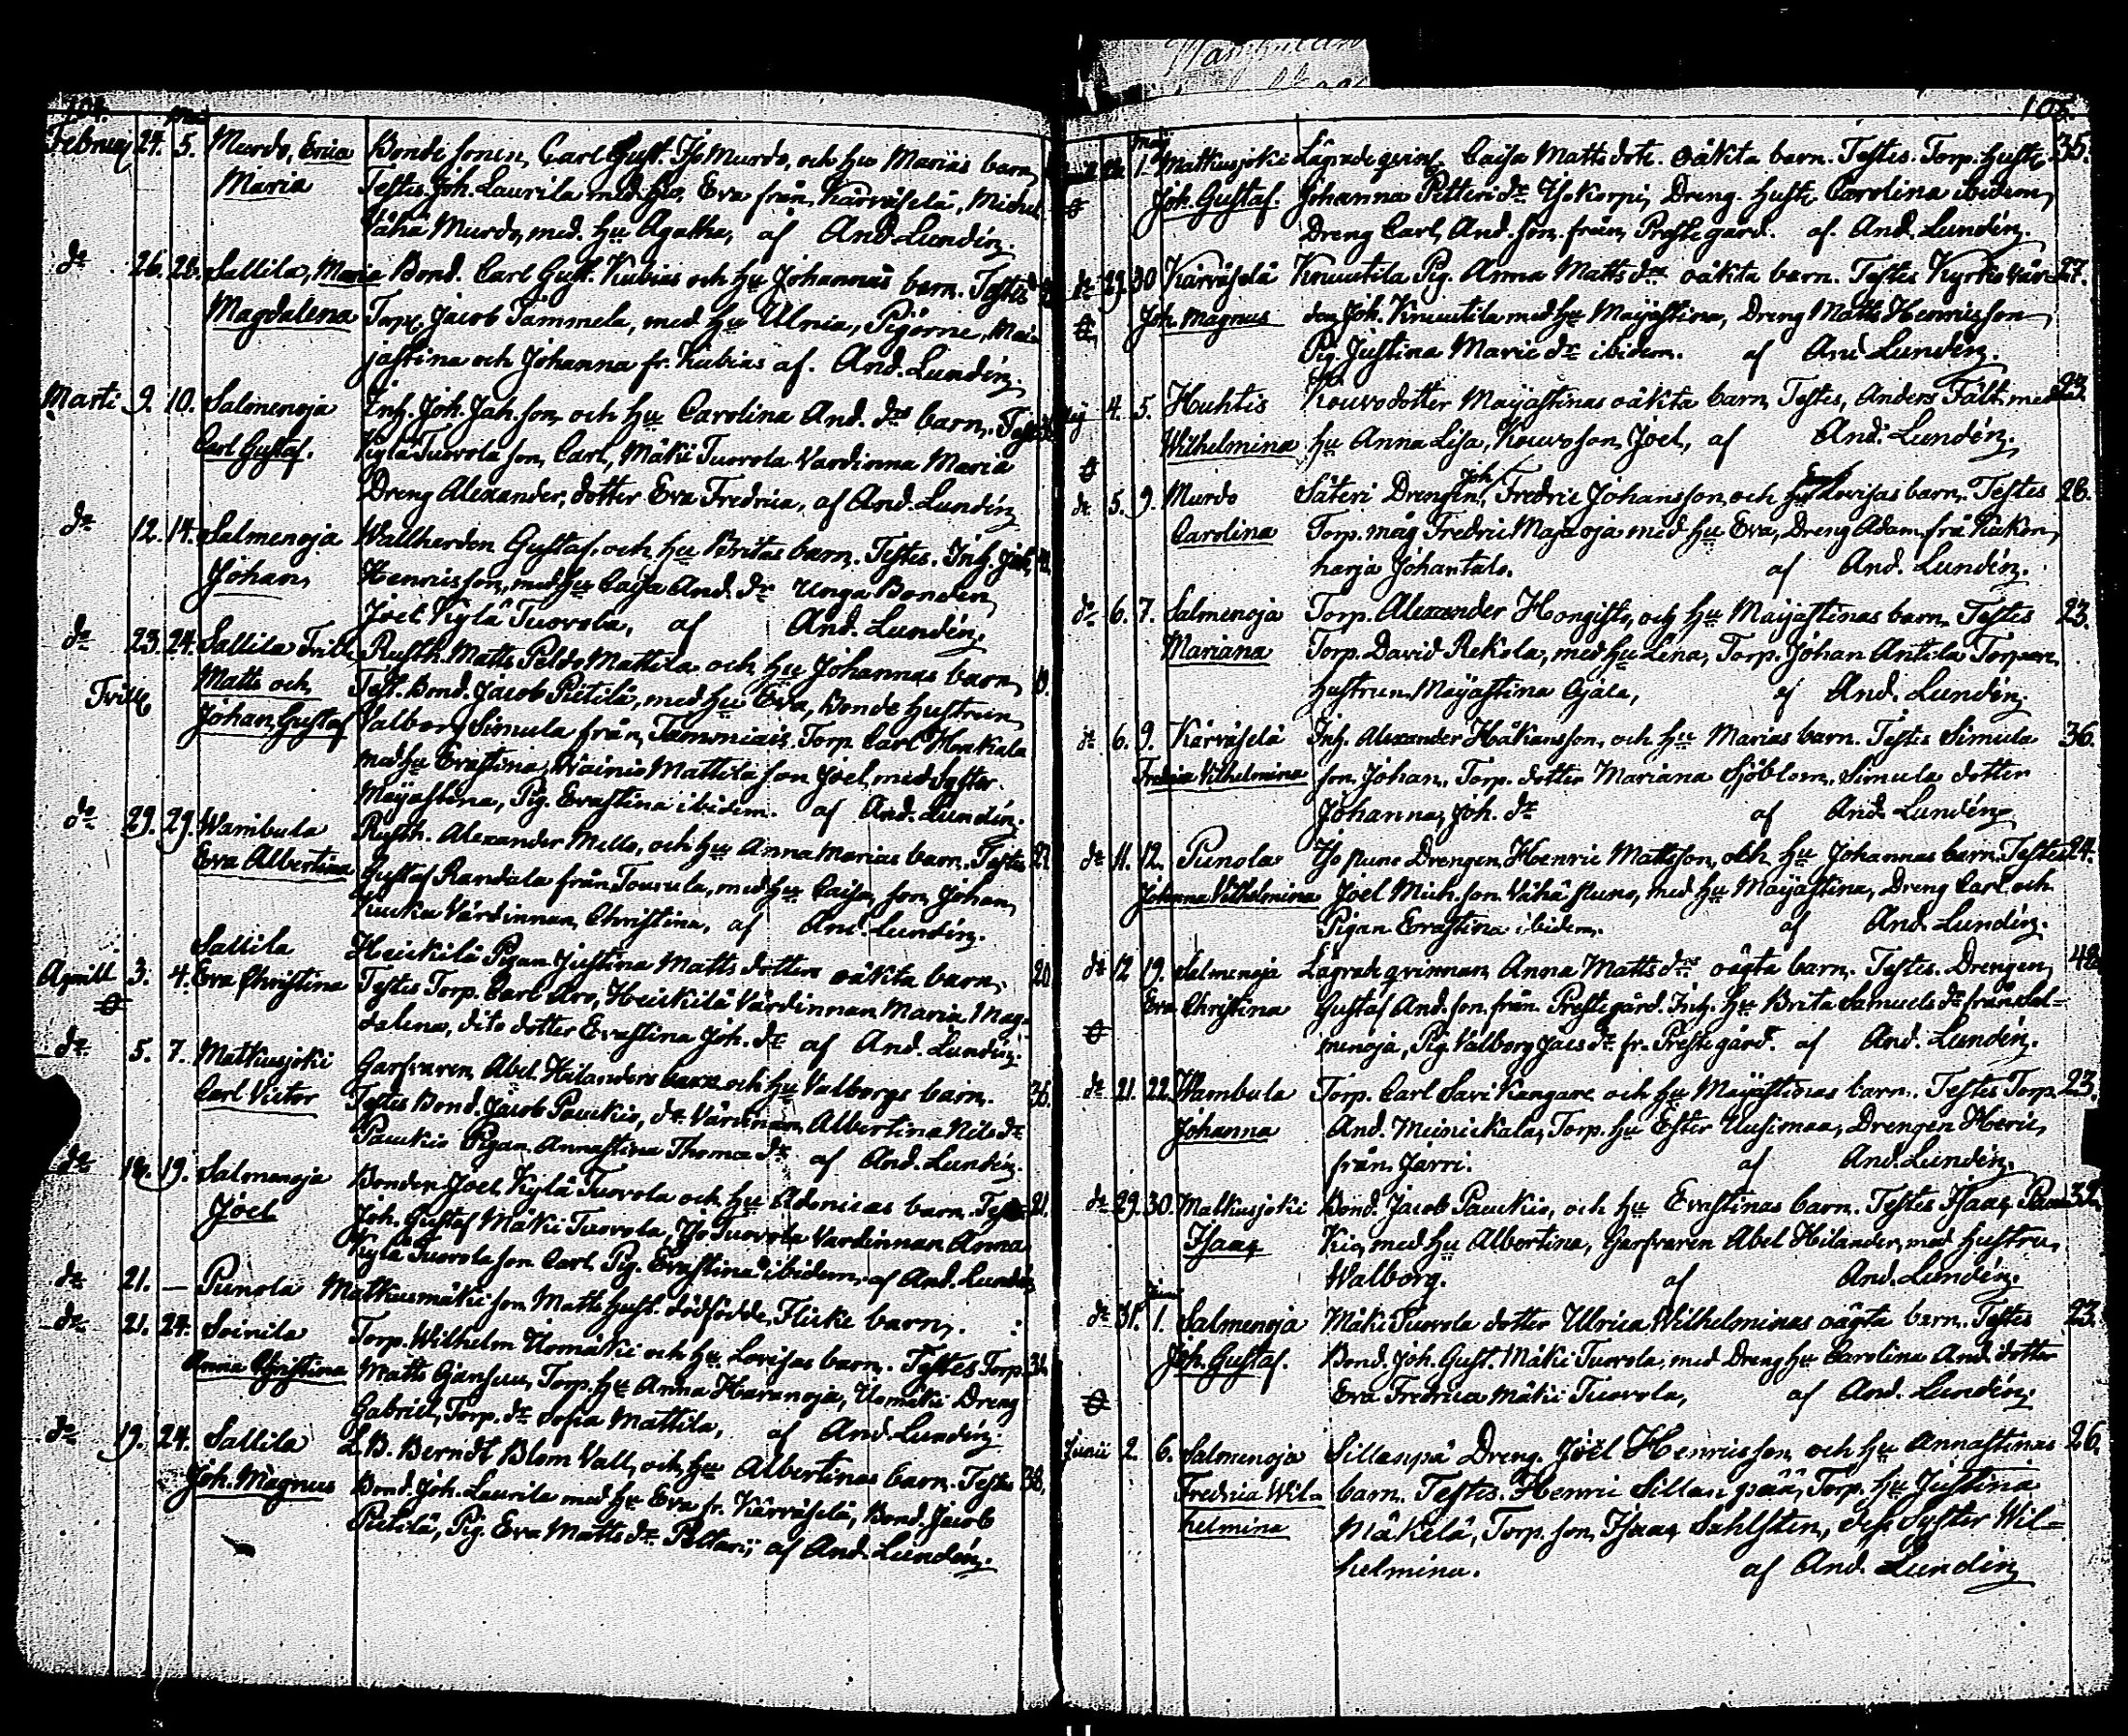 104.
Februarij 24. 5. Murdo, Erica Bonde sonen, Carl Gust. Iso Murdo, och hu Marias barn,
Maria Testes Joh. Laurila med hu, Eva från Kärväselä, Michel
Vähä Murdo, med hu Agatha, af And. Lundén.
do 26. 28. Sallila, Maria Bond. Carl Gust. Kubias och hu Johannas barn. Testes
Magdalena Torp. Jacob Tammela, med hu Ulrica, Pigorne, Mai-
jastina och Johanna fr. Kubias af. And. Lundén.
Marti 9. 10. Salmenoja Inh. Joh. Jah. son, och hu Carolina And. drs barn.
Carl Gustaf. Kylä Tuorola son, Carl, Mäki Tuorola Värdinna Maria
Dreng Alexander, dotter Eva Fredrica, af And. Lundén
do 12. 14. Salmenoja Wallherden Gustaf, och hu Britas barn. Testes. Inh. Joh.
Johan, Henricsson, med hu Caisa And. dr Unga Bonden,
Joel Kylä Tuorola, af And. Lundén.
do 23. 24. Sallila Trill. Rusth. Matts Peldo Mattila och hu Johannas barn, 19.
Trill. Matts och Test. Bond. Jacob Pietilä, med hu Eva, Bonde hustrun,
Johan Gustaf Valborg Simula från Tammiais. Torp. Carl Hrakala
med hu Evastina, Wainio Mattila son Joel, med Syster
Majastina, Pig. Evastina ibidem. af And. Lundén.
do 29. 29. Wambula Rusth. Alexander Mello, och hu Anna Marias barn. Testes
Eva Albertina Gustaf Randala från Tourula, med hu Caisa, son Johan,
Kuucka Värdinnan, Christina, af And. Lundén.
Sallila Heickilä Pigan Justina Matts dotters oäkta barn, 20
Aprill 3. 4. Eva Christina Testes Torp. Carl Arvo, Heickilä Värdinnan Maria Mag-
dalena, dito dotter Evastina Joh. dr af And. Lundén.
do 5. 7. Matkusjoki Garfvaren Abel Hilanders och hu Valborgs barn. 36.
Carl Victor Testes Bond. Jacob Pauckio, do Värdinnan Albertina Nils dr
Pauckio Pigan Annastina Thomæ dr af And. Lundén.
do 18. 19. Salmenoja Bonden Joel Kylä Tuorola och hu Adonicas barn. 21.
Joel Joh. Gustaf Mäki Tuorola, Iso Tuorola Värdinnan Anna
Kylä Tuorola son Carl Pig. Evastina ibidem. af And. Lundén
do 21. — Punola Matkusmäki son Matts hust. dödfödde, Flicke barn.
do 21. 24. Soinila Torp. Wilhelm Uomäki och hu. Lovisas barn. Testes Torp. 36
Anna Christina Matts Ojansuu, Torp. hu Anna Haranoja, Uomäki Dreng
Gabriel, Torp. dr Sofia Mattila, af And. Lundén.
do 19. 24. Sallila L. B. Berndt Blom Vall, och hu Albertinas barn. Testes 38.
Joh. Magnus Bond. Joh. Laurila med hu Eva fr. Kärväselä, Bond. Jacob
Pietilä, Pig. Eva Matts dr. Peltari, af And. Lundén.
105.
Maij
1. Matkusjoki Lägrade qvinf. Caisa Matts dots. oäkta barn. Testes. Torp. hustr. 35.
Joh. Gustaf. Johanna Petteri dr Isokorpi, Dreng. hustr. Carolina ibidem,
Dreng Carl, And. son. från, Prestegård. af. And. Lundén.
do 29 30 Kärväselä Knuutila Pig. Anna Matts drs oäkta barn. Testes Kyrko vär- 27.
Joh. Magnus den Joh. Knuutila med hu Majastina, Dreng Matts Henricsson
Pig. Justina Maria dr ibidem. af And. Lundén.
Maij 4. 5. Huhtis Kouvo dotter Majastinas oäkta barn, Testes, Anders Fält. med 23.
Wilhelmina hu Anna Lisa, Kouvo son, Joel, af And. Lundén.
do 5. 9. Murdo Säteri Drengen Joh. Fredric Johansson, och hu Lovisas barn. Testes 28.
Carolina Torp. måg Fredric Majaoja med hu Eva, Dreng Adam, frå Kukon,
harja Johantalo. af And. Lundén.
do 6. 7. Salmenoja Torp. Alexander Hongisto, och hu Majastinas barn. Testes 23.
Mariana Torp. David Rekola, med hu Lena, Torp. Johan Antila Torpare,
hustrun Majastina Ojala, af And. Lundén.
do 6. 9. Kärväselä Inh. Alexander Håkansson, och hu Marias barn. Testes Simula 36.
Fredrica Vilhelmina son, Johan, Torp. dotter Mariana Sjöblom, Simula dotter
Johanna, Joh. dr af And. Lundén
do 11. 12. Punola Iso Puno Drengen, Henric Mattsson, och hu Johannas barn. Testes 24.
Johanna Vilhelmina Joel Mich. son Vähä Puno, med hu Majastina, Dreng Carl och
Pigan Evastina ibidem. af And. Lundén.
do 12 19. Salmenoja Lägrade qvinnan, Anna Matts drs oägta barn. Testes. Drengen, 48
Eva Christina Gustaf And. son. från Prestegård. Inh. hu Brita Samuels dr från Sal-
menoja, Pig. Valborg Jacs dr. fr. Prestegård. af And. Lundén.
do 21. 22. Wambula Torp. Carl Savi Kangare och hu Majastinas barn. Testes Torp. 23.
Johanna And. Meinickala, Torp. hu Ester Uusimaa, Drengen Henric,
från, Jarri. af And. Lundén.
do 29. 30. Matkusjoki Bond. Jacob Pauckio, och hu Evastinas barn. Testes Isaac Pauc- 32.
Isaac kio, med hu Albertina, Garfvaren Abel Hilander, med hustru,
Walborg. af And. Lundén.
Junii
do 31. 1. Salmenoja Mäki Tuorola dotter Ulrica Wilhelminas oägta barn. Testes 23.
Joh. Gustaf. Bond. Joh. Gust. Mäki Tuorola, med Dreng hu Carolina And. dotter
Eva Fredrica Mäki Tuorola, af And. Lundén.
Junii 2. 6. Salmenoja Sillanpä Dreng. Joël Henricsson och hu Annastinas 26.
Fredrica Wil- barn. Testes. Henric Sillanpää, Torp. hu Justina
helmina Mäkelä, Torp. son, Isaac Sahlsten, dess Syster Wil-
helmina. af And. Lundén